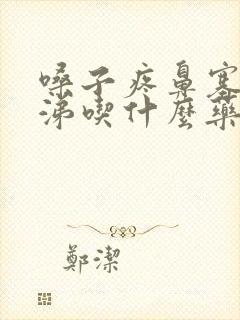 嗓子疼鼻塞
涕喫什麼藥
鄭潔